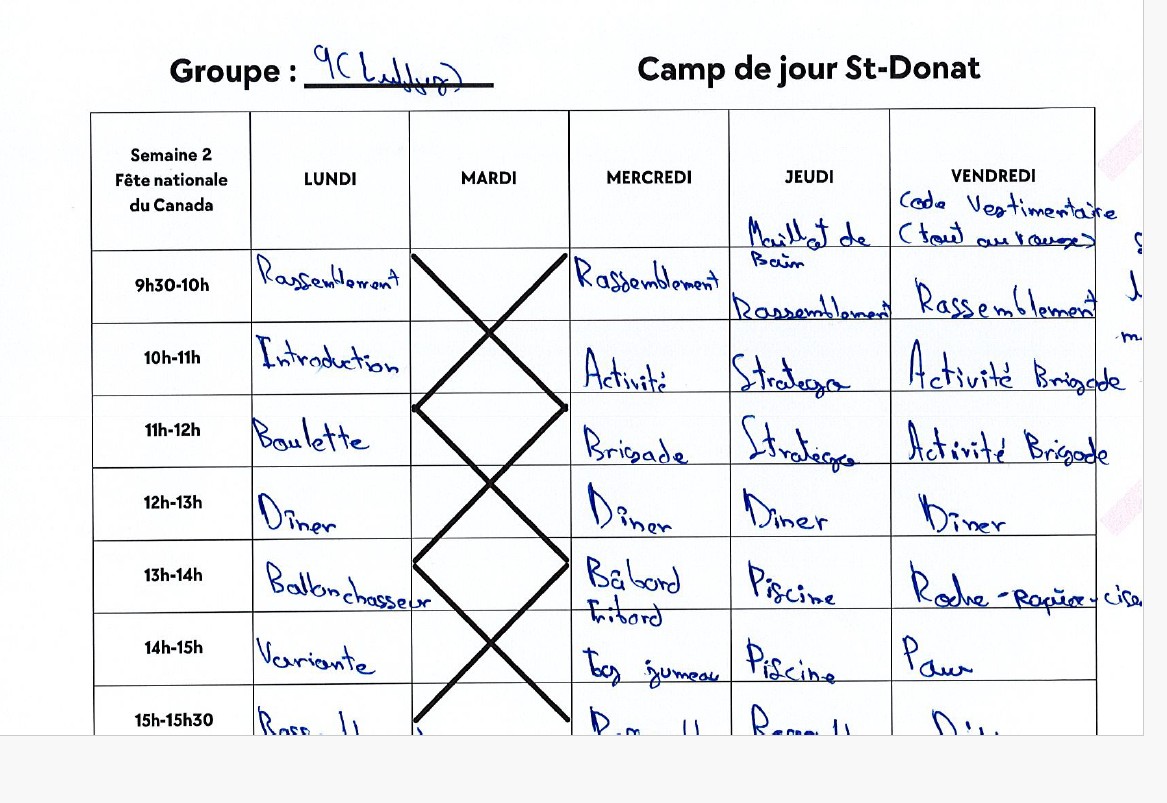 Groupe : 9 (Luffyz) Camp de jour St-Donat
Semaine 2
Fête nationale
du Canada
LUNDI MARDI MERCREDI JEUDI VENDREDI
Maillot de
Bain
Code Vestimentaire
(tout au rouge)
9h30-10h Rassemblement Rassemblement Rassemblement Rassemblement
10h-11h Introduction Activité Stratego Activité Brigade
11h-12h Boulette Brigade Stratego Activité Brigade
12h-13h Dîner Dîner Dîner Dîner
13h-14h Ballonchasseur Bâbord Piscine Roche - Papier - cise
Tribord
14h-15h Variante Tag jumeau Piscine
15h-15h30